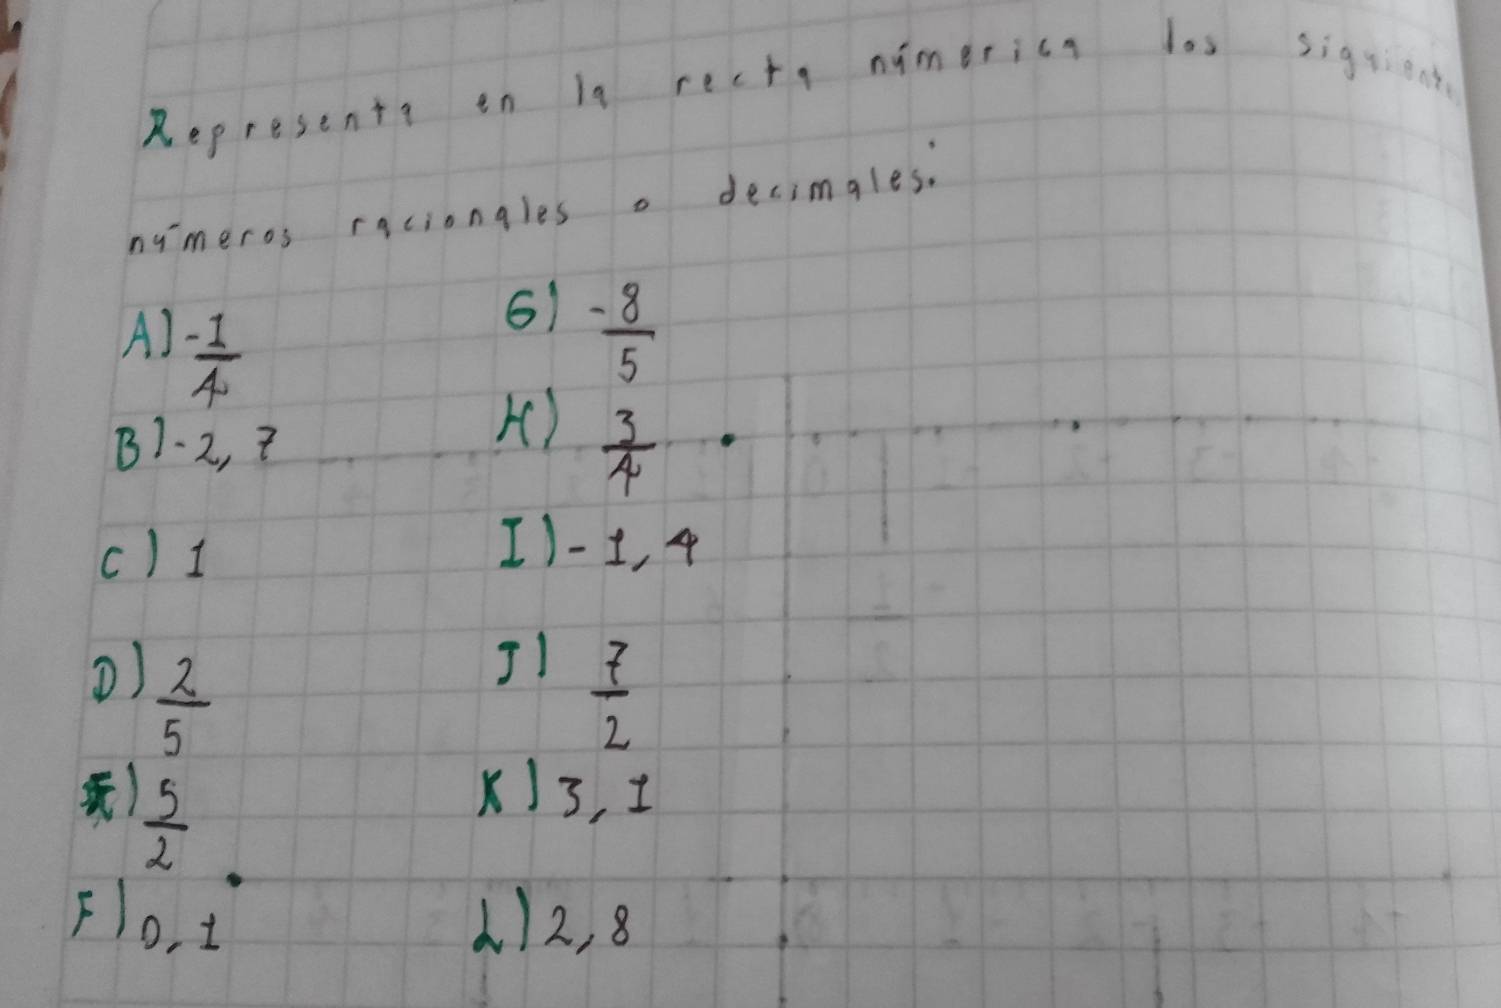 Representa en la recta númerica los siguientes
números racionales o decimales:
A) -1/4
B) -2,7
C) 1
D) 2/5
E) 5/2
F) 0,1
G) -8/5
H) 3/4
I) -1,4
J) 7/2
K) 3,1
L) 2,8